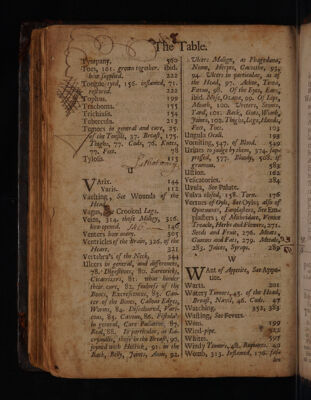 The Table.
Tympany. 560
Toes, 101. grown together. ibid.
how supplied. 222
Tongue-tyed, 156. inflamed, 71.
restored. 222
Tophus. 199
Trachoma. 155
Trichiasis. 154
Tubercula. 213
Tumors in general and cure, 25.
of the Tonsils, 37. Breast, 175.
Thighs, 77. Cods, 76. Knees,
77. Feet. 78
Tylosis. 115
VArix. 144
Varix. 112
Vaulting, See Wounds of the
Head.
Vagus, See Crooked Legs.
Veins, 314. those Milky, 316.
how opened. 146
Venters how many. 305
Ventricles of the Brain, 326. of the
Heart. 321
Vertebra's of the Neck, 344
Ulcers in general, and differences,
78. Digestives, 80. Sarcoticks,
Cicatrizers, 81. what hinder
their cure, 82. foulness of the
Bones, Excrescences, 85. Can-
cer of the Bones, Callous Edges,
Worms, 84. Distempered, Vari-
cous, 85. Cavous, 86. Fistula's
in general, Cure Palliative, 87.
Real, 88. In particular, as La-
joyned with Hectick, 91. in the
Back, Belly, Joints, Anus, 92.
Ulcers Malign, as Phagedena,
Nome, Herpes, Cacoethe, 93,
94. Ulcers in particular, as of
the Head, 97. Achor, Tinea,
Favus, 98. Of the Eyes, Ears,
ibid. Nose, Ozæna, 99. Of Lips,
Mouth, 100. Ureters, Stones,
Yard, 101. Back, Guts, Womb,
Joints, 102. Thighs, Legs, Hands,
Feet. 103
Ungula Oculi. 198
Vomiting, 547. of Blood. 549
Urines to judge by them, 374. sup-
pressed, 577. Bloody, 508. if
583
Ustion. 162
Vesicatories. 284
Uvula, See Palate.
Vulva closed, 158. Torn. 176
Vertues of Oyls, See Oyls; also of
Oyntments, Emplasters, See Em-
plasters; of Mithridate, Venice
Treacle, Herbs and Flowers, 271.
Seeds and Fruit, 276. Meats,
Gumms and Fats, 279. Metals,
283. Juices, Syrups. 289
W
WAnt of Appetite, See Appe-
tite.
Warts. 201
Watery Tumors, 45. of the Head,
Breast, Navil, 46. Cods. 47
Watching. 352, 383
Wasting, See Fevers.
Wens. 199
Wind-pipe. 322
Whites. 597
Windy Tumors, 48. Ruptures. 49
Womb, 313. Inflamed, 176. false